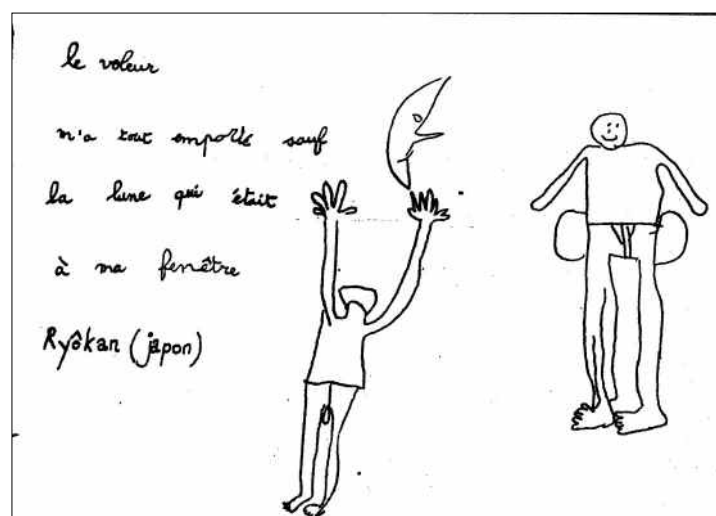 le voleur
m'a tout emporté sauf
la lune qui était
à ma fenêtre
Ryôkan (japon)